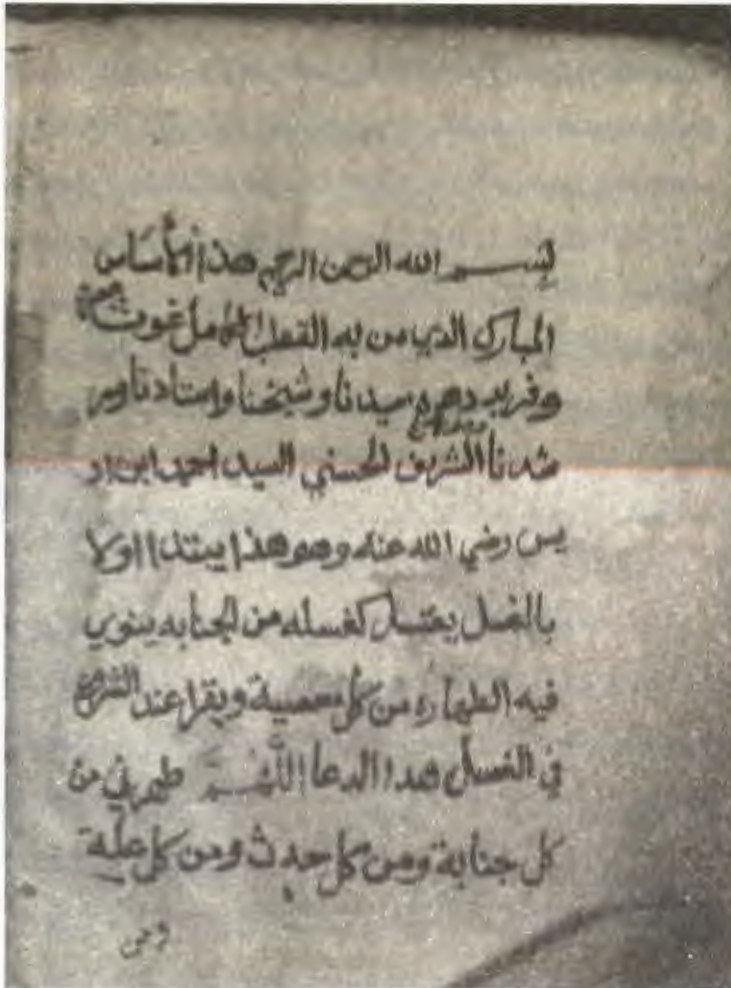 بسم الله الرحمن الرحيم هذا الأساس
المبارك الذي من به القطب الكامل غوث
وفريد دهره سيدنا وشيخنا واستادنا ومر
شدنا الشريف الحسني السيد احمد ابن ادر
يس رضي الله عنه وهو هذا يبتدا اولا
بالغسل يغتسل كغسله من الجنابه ينوي
فيه الطهاره من كل معصية ويقرا عند الشروع
في الغسل هدا الدعا اللهم طهرني من
كل جنابة ومن كل حدث ومن كل علة
ومن